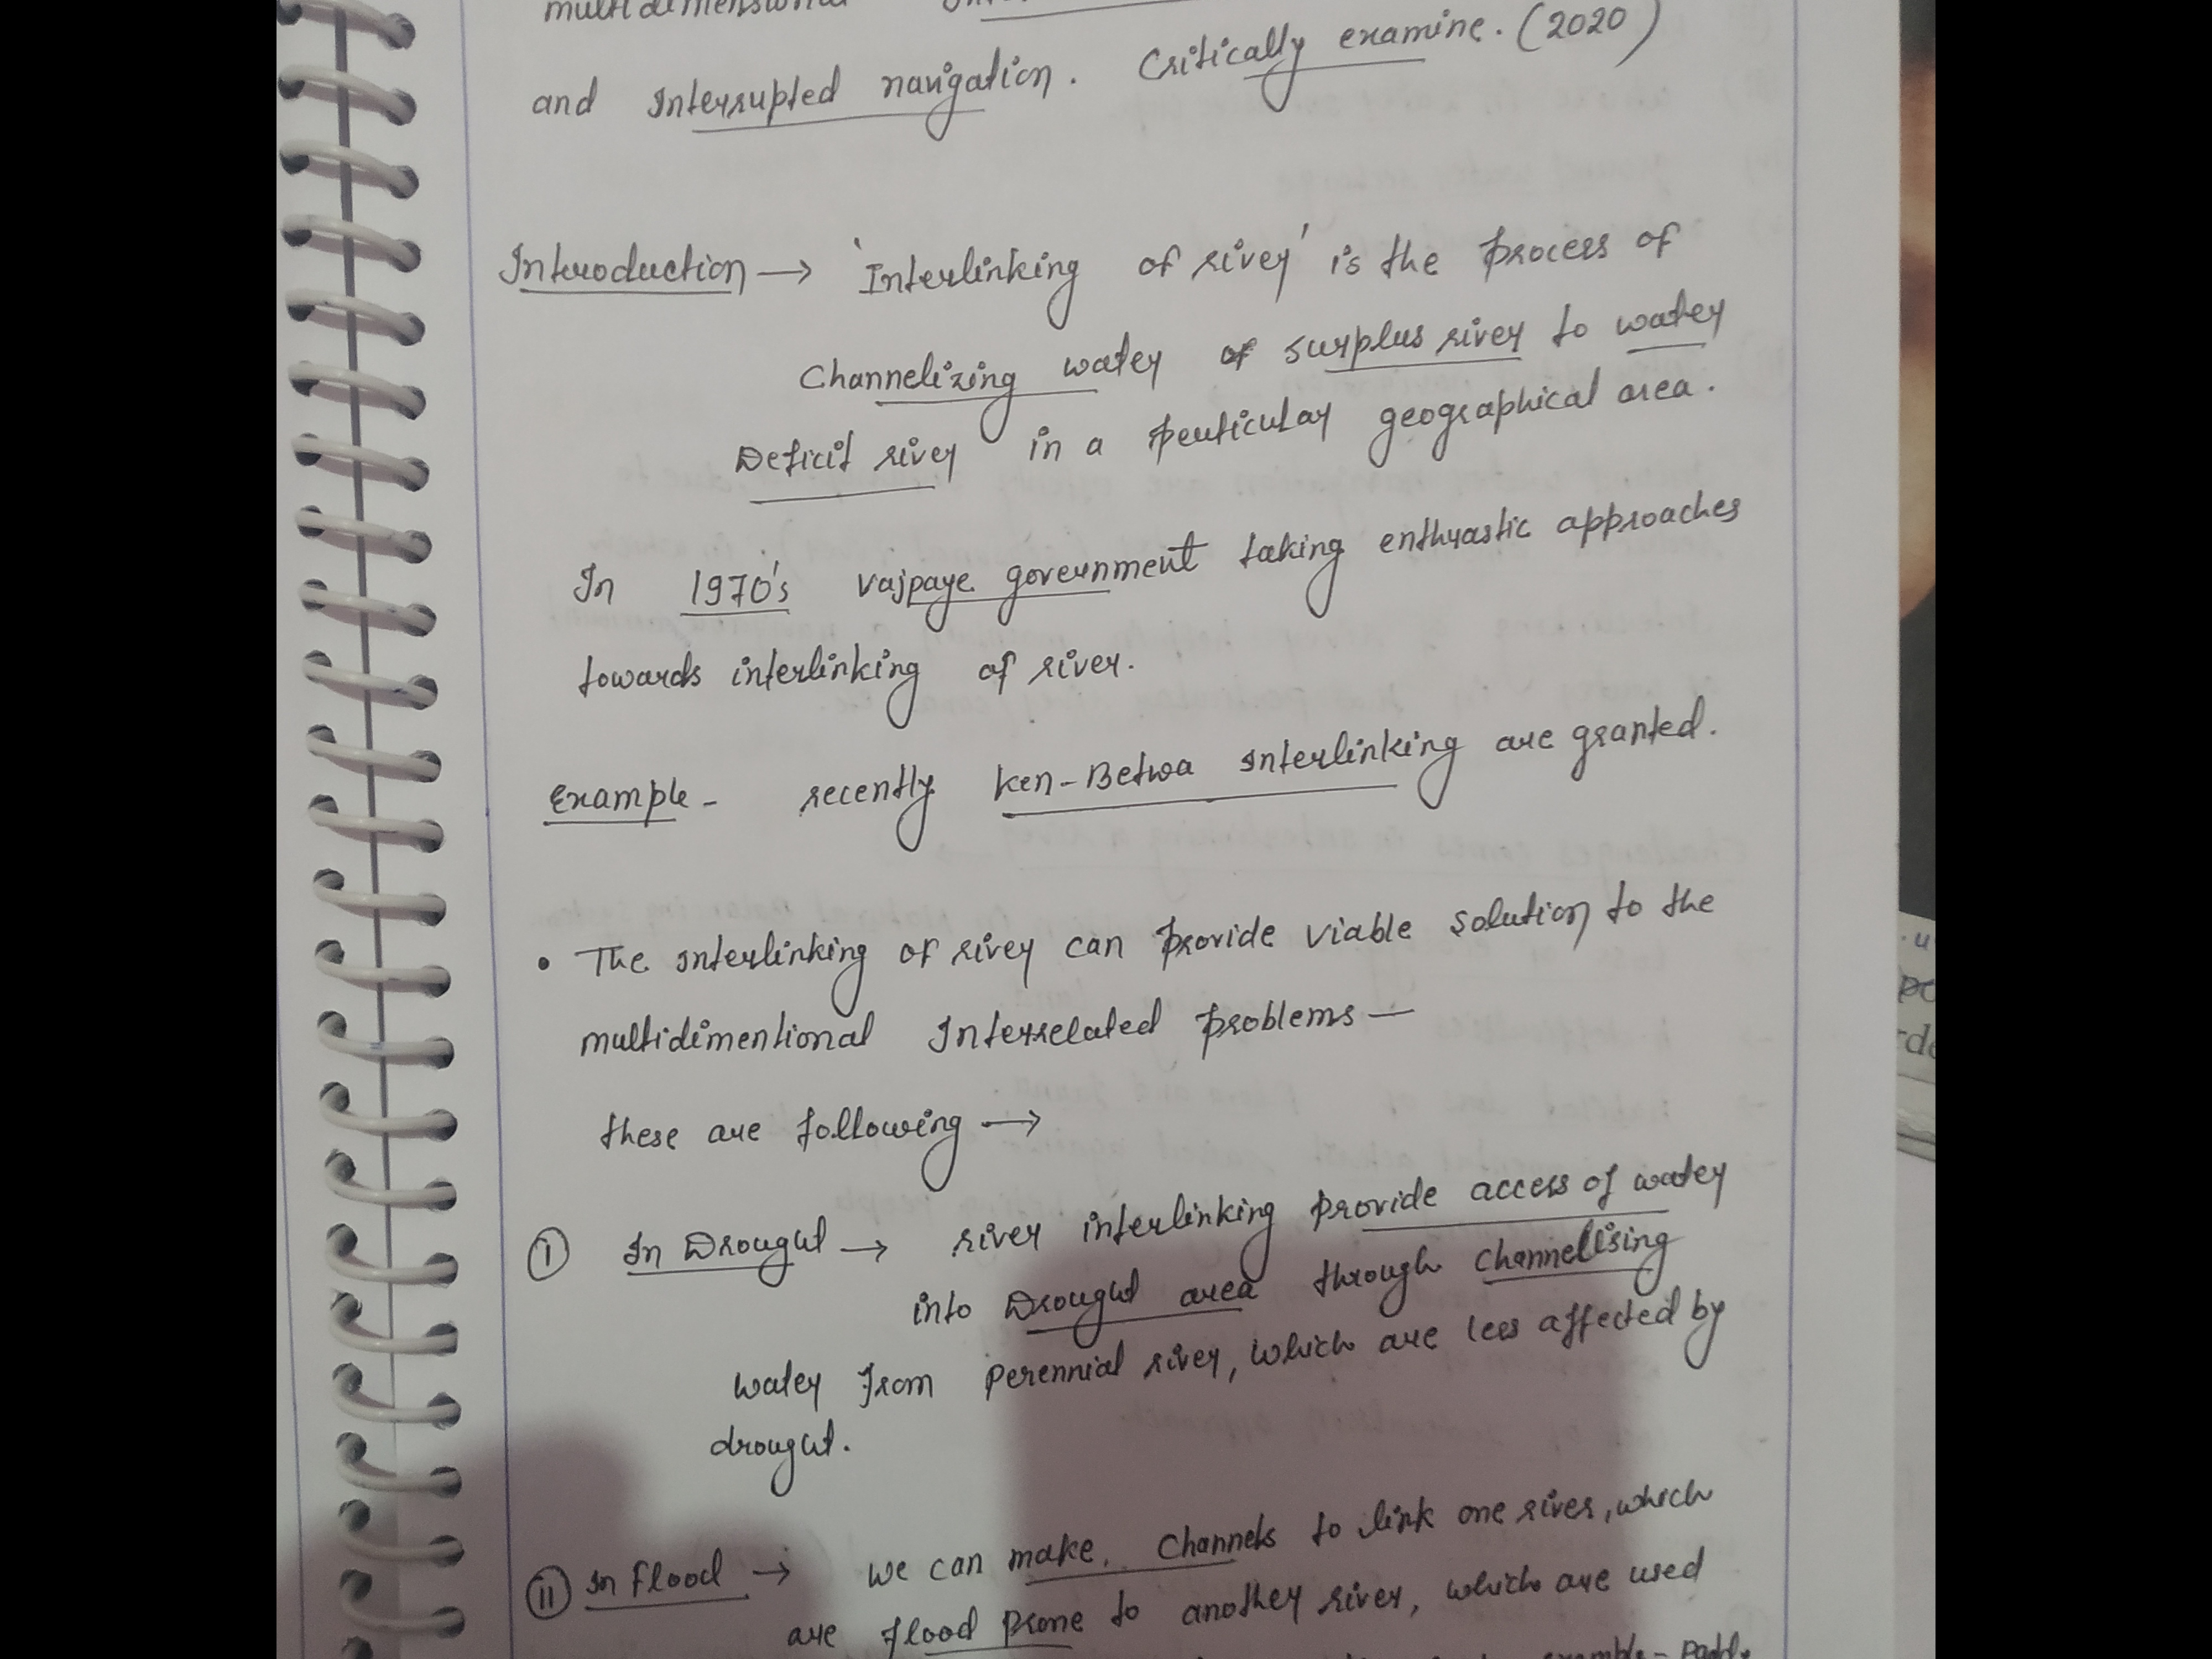 multidimensional
and Interrupted navigation. Critically examine. (2020)
Introduction → 'Interlinking of river' is the process of
Channelizing water of surplus river to water
Deficit river in a perticular geographical area.
In 1970's vajpaye government taking enthyastic approaches
towards interlinking of river.
Example - recently Ken-Betwa interlinking are granted.
• The interlinking of river can provide viable solution to the
multidimentional Interrelated problems —
these are following →
I In Drought → river interlinking provide access of water
into Drought area through channelising
water from perennial river, which are less affected by
drought.
II In flood → we can make channels to link one river, which
are flood prone to another river, which are used
example -